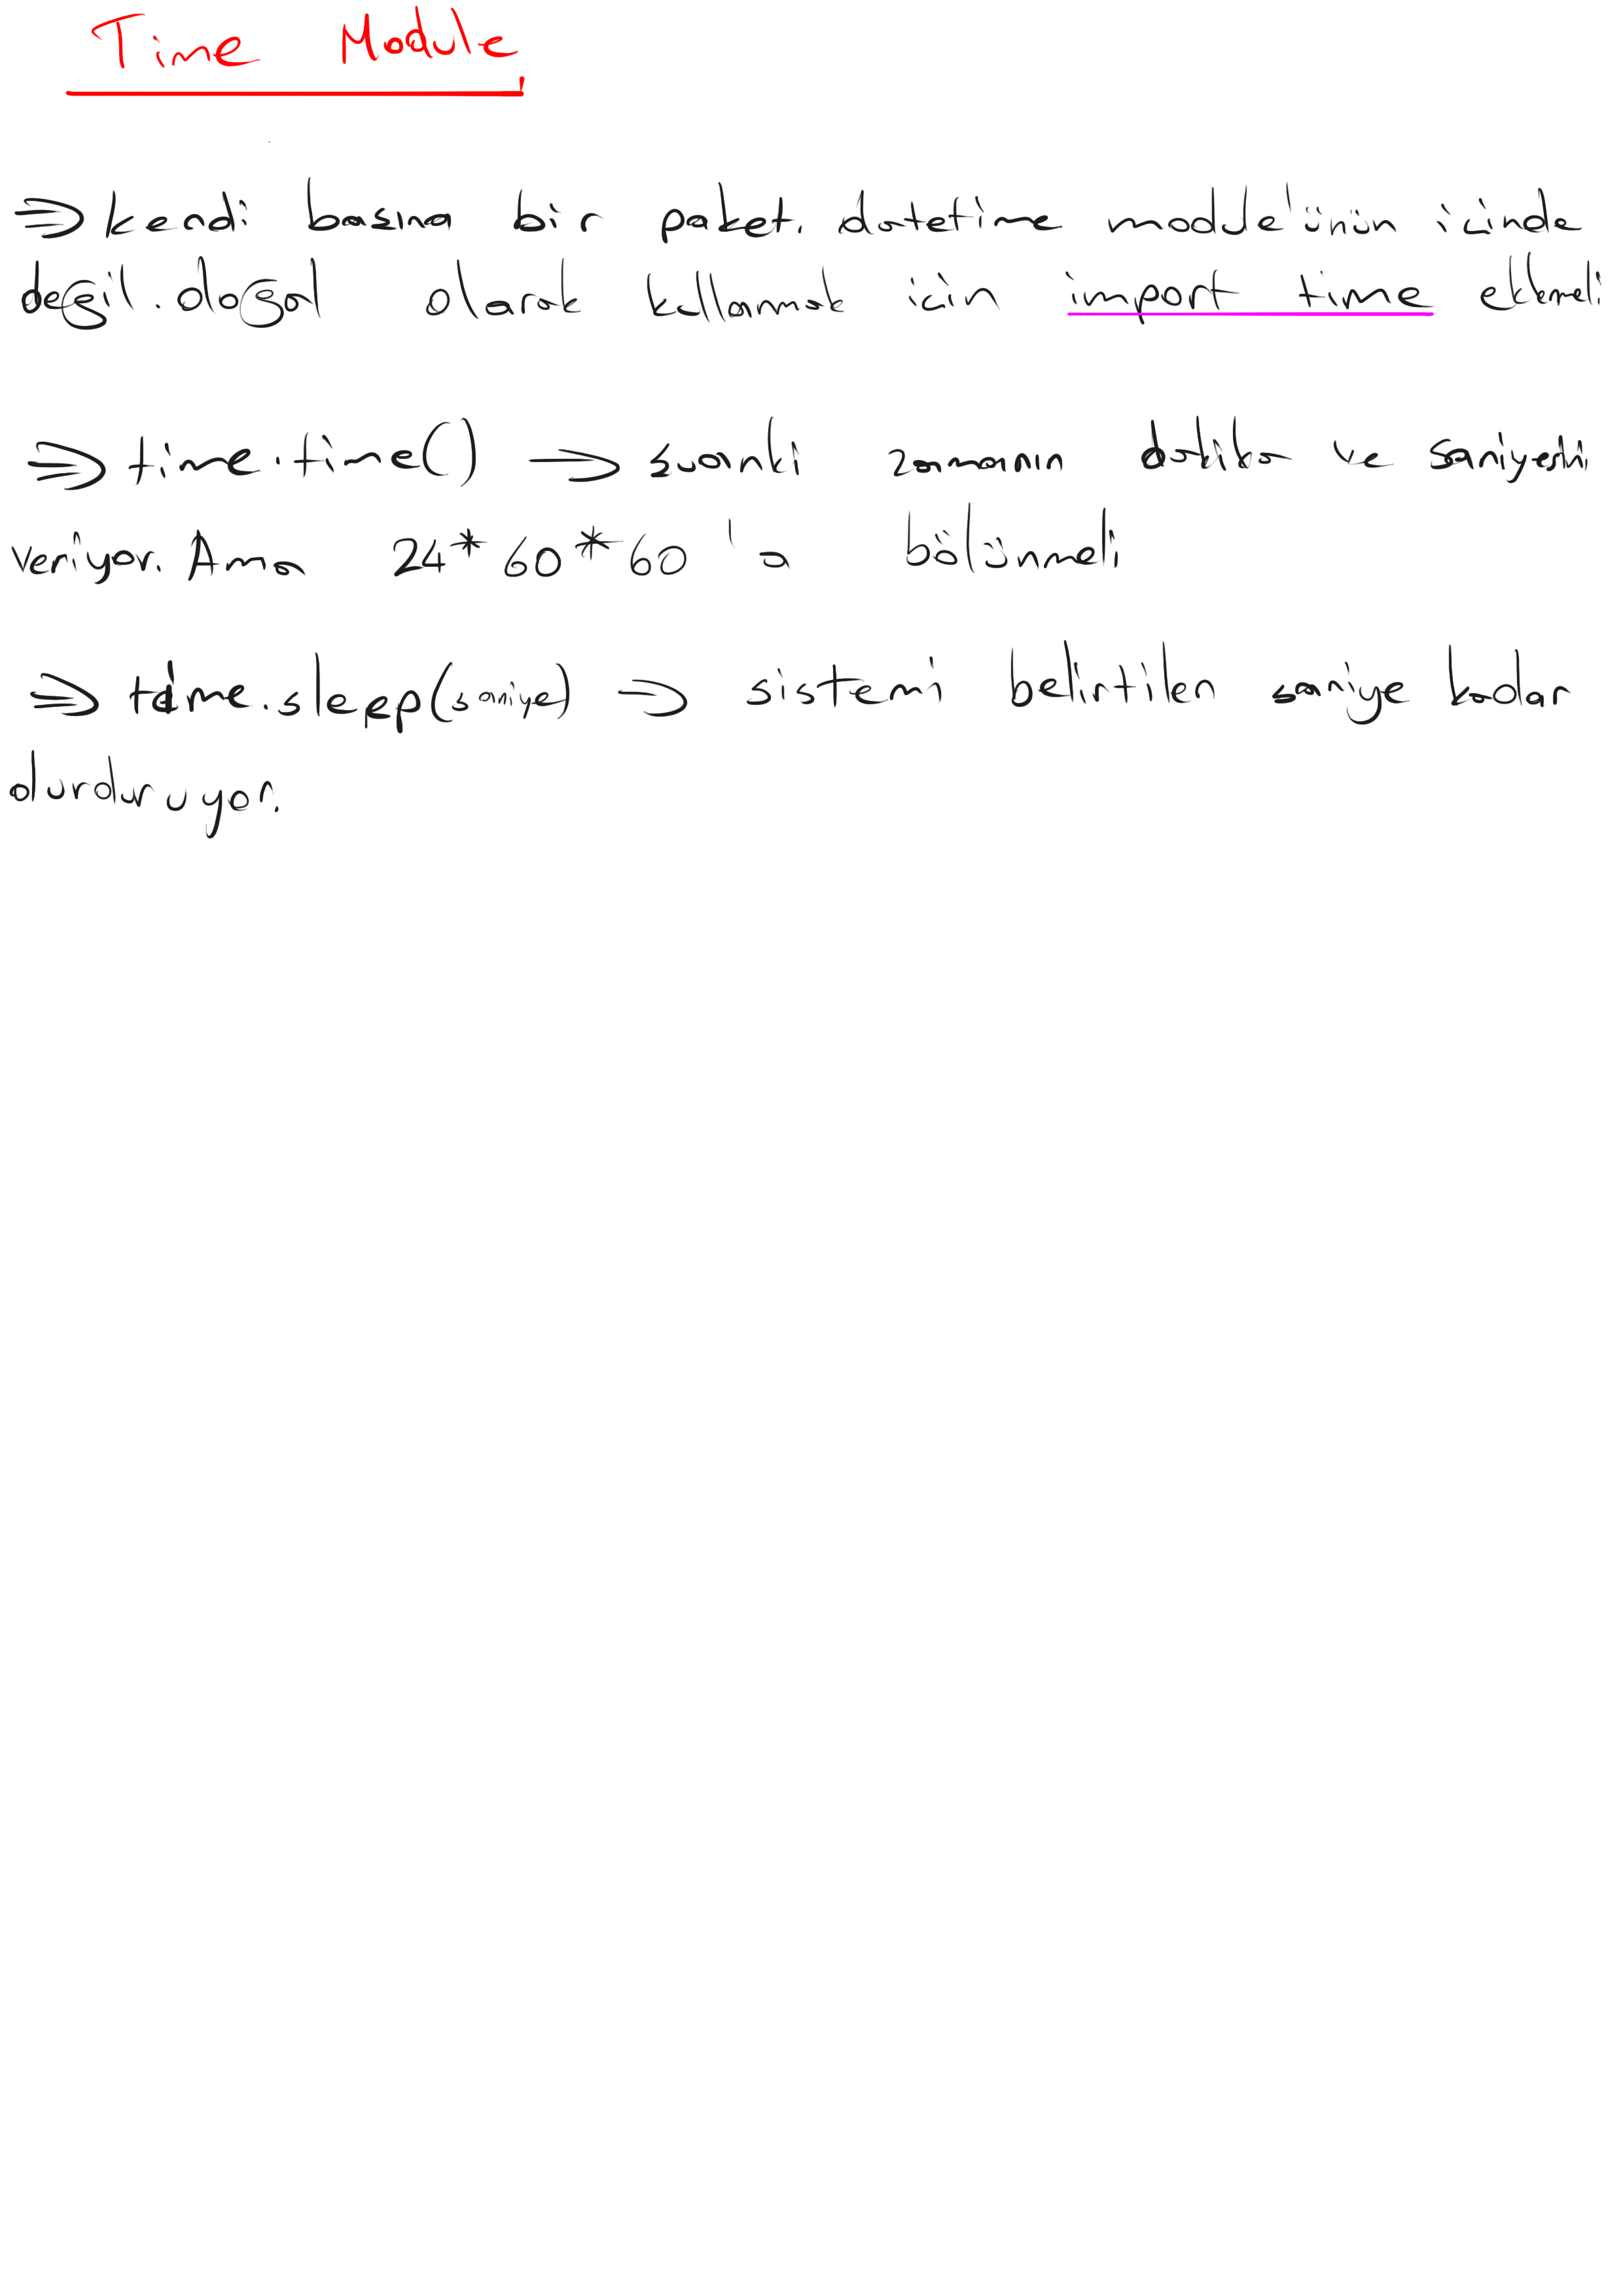 Time Module
⇒ kendi basına bir paket. datetime module'ünün içinde
değil. doğal olarak kullanmak için import time eklemeli
⇒ time.time() → suanki zamanın dakika ve saniyesini
veriyor. Ama 24*60*60'a bölünmeli
⇒ time.slepp(saniye) ⇒ sistemi belirtilen saniye kadar
durduruyor.